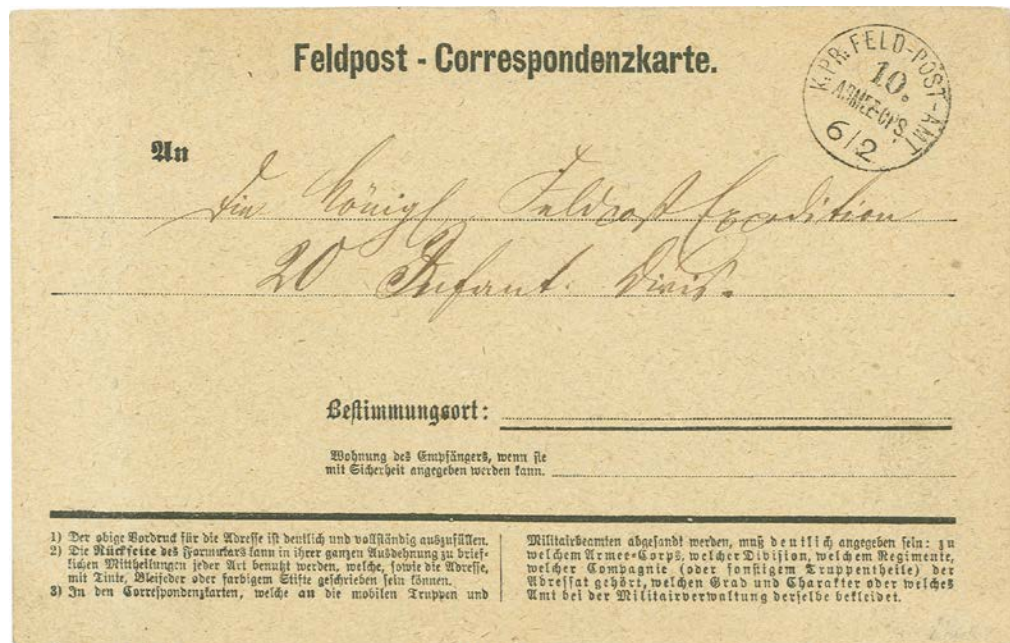 Feldpost - Correspondenzkarte.
K.PR.FELD-POST-AMT
10.
ARMEE-CPS.
6/2
An
die Königl Feldpost Expedition
20 Infant. Divis.
Bestimmungsort:
Wohnung des Empfängers, wenn sie
mit Sicherheit angegeben werden kann.
1) Der obige Vordruck für die Adresse ist deutlich und vollständig auszufüllen.
2) Die Rückseite des Formulars kann in ihrer ganzen Ausdehnung zu brief-
lichen Mittheilungen jeder Art benutzt werden, welche, sowie die Adresse,
mit Tinte, Bleifeder oder farbigem Stifte geschrieben sein können.
3) In den Correspondenzkarten, welche an die mobilen Truppen und
Militairbeamten abgesandt werden, muß deutlich angegeben sein: zu
welchem Armee-Corps, welcher Division, welchem Regimente,
welcher Compagnie (oder sonstigem Truppentheile) der
Adressat gehört, welchen Grad und Charakter oder welches
Amt bei der Militairverwaltung derselbe bekleidet.